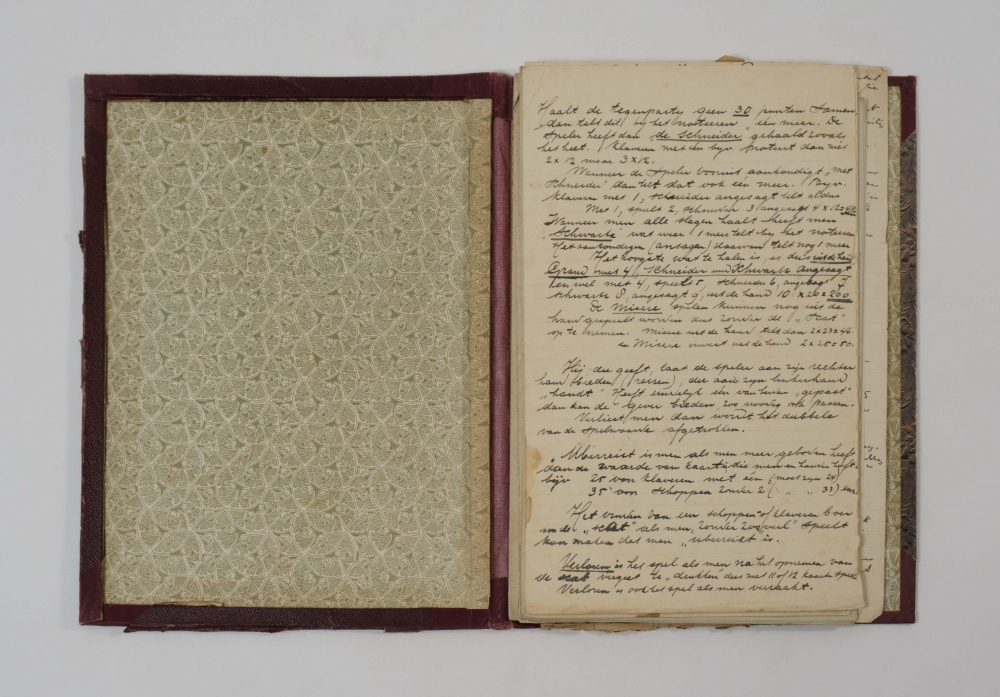 Haalt de tegenpartij geen 30 punten samen
dan telt dit bij het noteeren één meer. De
speler heeft dan "de Schneider" gehaald zooals
het heet. Klaveren met één bijv noteert dan niet
2 x 12 maar 3 x 12.
Wanneer de speler vooruit aankondigt "met
Schneider" dan telt dat ook één meer. Bijv.
Klaveren met 1, Schneider angesagt telt aldus
Met 1, spelt 2, schneider 3 angesagt 4 x 12 = 48
Wanneer men alle slagen haalt heeft men
"Schwartz" wat weer 1 meer telt bij het noteeren
Het aankondigen (ansagen) daarvan telt nog 1 meer
Het hoogste wat te halen is, is dus uit de hand
Grand met 4, Schneider und Schwartz angesagt
en wel met 4, spelt 5, Schneider 6, angesagt 7
Schwartz 8, angesagt 9, uit de hand 10 x 20 = 200
De Misère spelen kunnen nog uit de
hand gespeeld worden dus zonder de "Scat"
op te nemen. Misère uit de hand telt dan 2x23=46.
en Misère ouvert uit de hand 2 x 25 = 50.
Hij die geeft, laat de speler aan zijn rechter
hand bieden (reisen), die aan zijn linkerhand
"houdt" Heeft eindelijk één van beiden "gepast"
dan kan de gever bieden, zoo noodig ook passen.
Verliest men dan wordt het dubbele
van de spelwaarde afgetrokken.
"Uberreist" is men als men meer geboden heeft
dan de waarde van kaarten die men in handen heeft.
bijv 25 voor klaveren met een (moet zijn 24)
35 voor Schoppen zonder 2 ( " " 33) enz
Het vinden van een schoppen of klaveren boer
in de "scat" als men "zonder zooveel" speelt
kan maken dat men "uberreist" is.
Verloren is het spel als men na het opnemen van
de scat vergeet te "drukken" dus met 11 of 12 kaarten speelt
Verloren is ook het spel als men verzaakt.